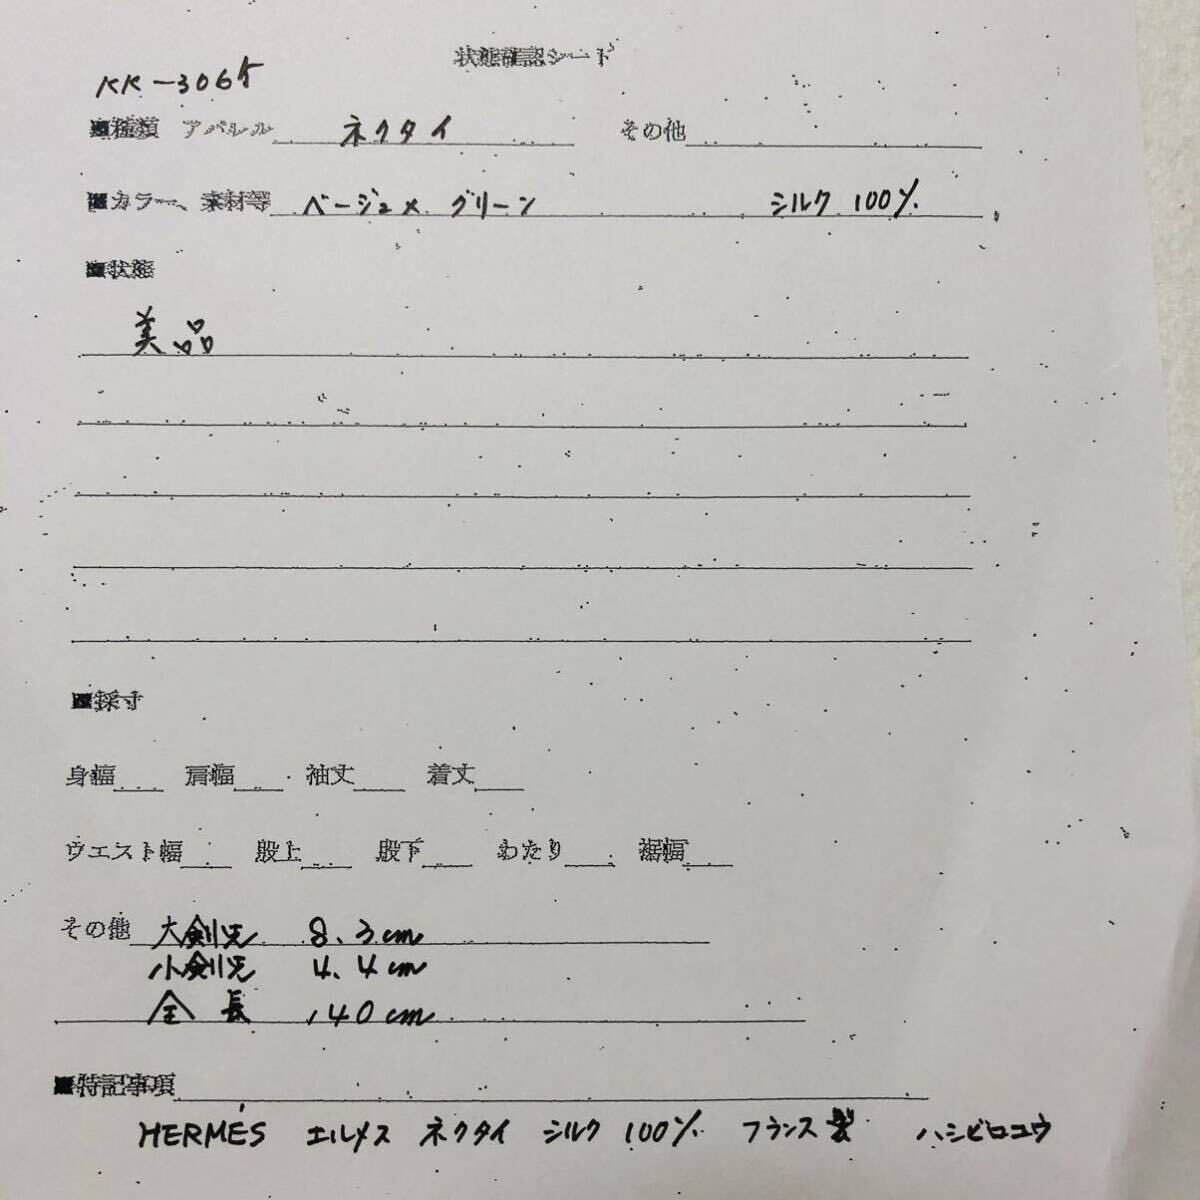 状態確認シート
KK-306ケ
■種類 アパレル ネクタイ その他
■カラー、素材等 ベージュ× グリーン シルク 100%
■状態
美品
■採寸
身幅 肩幅 袖丈 着丈
ウエスト幅 股上 股下 わたり 裾幅
その他 大剣先 8.3cm
小剣先 4.4cm
全長 140cm
■特記事項
HERMÈS エルメス ネクタイ シルク 100% フランス製 ハシビロコウ